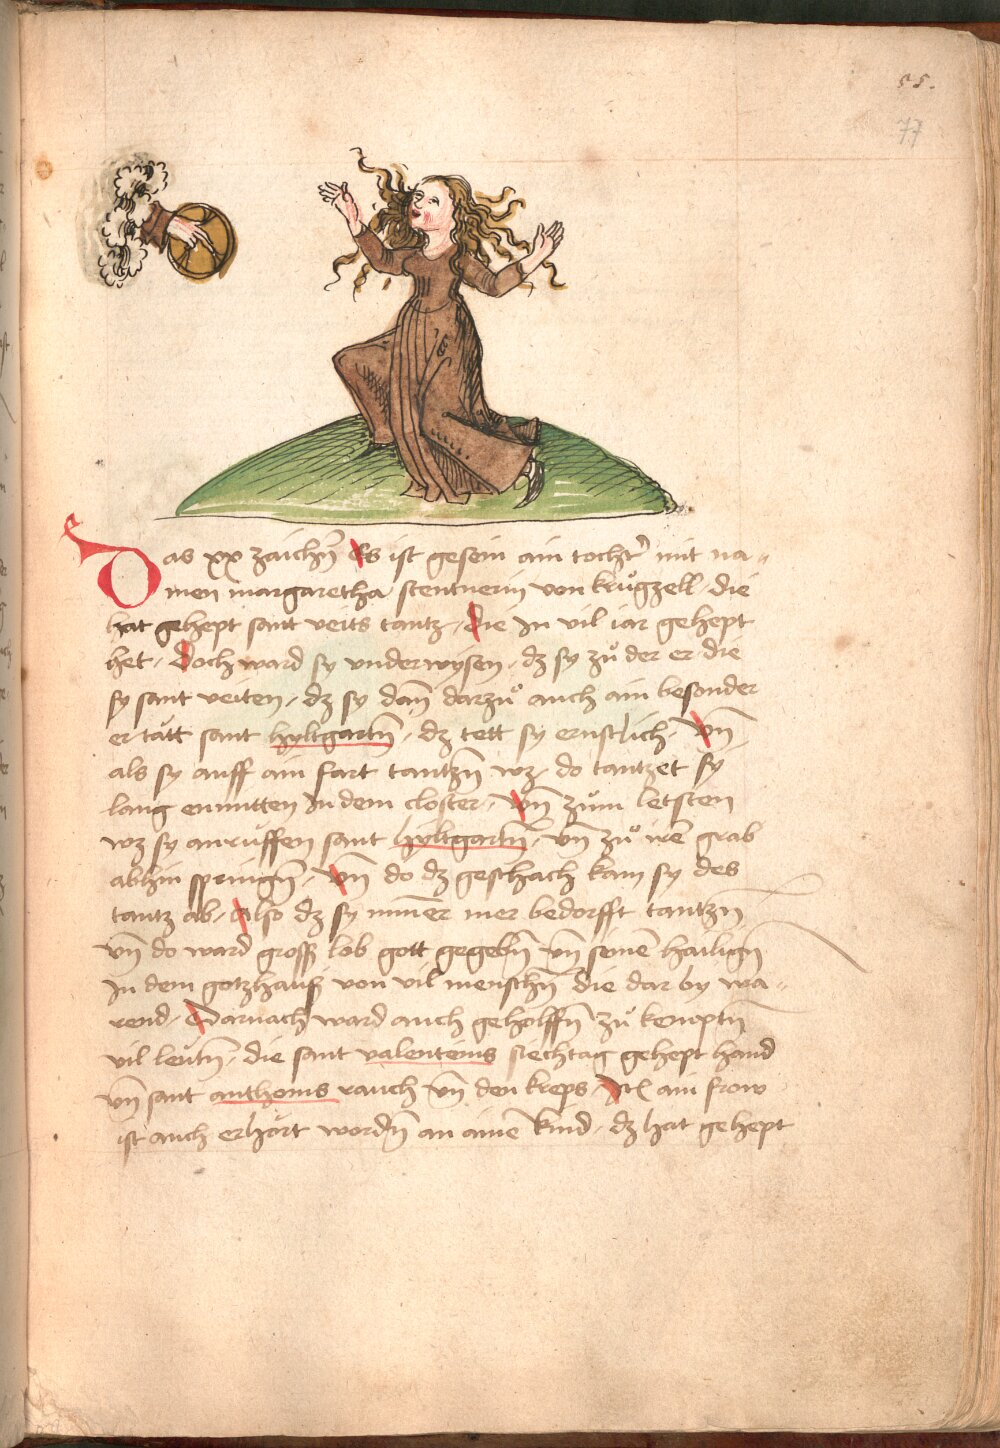 55.
77
Das xx zaichñ Es ist gesein ain tochtr̃ mit na-
men margaretha stentnerin von krůgzell / die
hat gehept sant veits tantz / die jn vil iar gehept
het / Doch ward sy underwysen / dz sy zů der er die
sy sant veiten / dz sy dañ darzů auch ain besonder
er tätt sant hyltgartñ / dz tett sy ernstlich / Vñ
als sy auff ain fart tantzñ wz / do tantzet sy
lang enmitten jn dem closter / Vñ zům letsten
wz sy anrüffen sant hyltgartñ / vñ zů irē grab
abhin springñ / Vñ do dz geschach kam sy des
tantz ab / Also dz sy nimēr mer bedorfft tantzñ
vñ do ward groß lob gott gegebñ vñ seinē hailigñ
jn dem gotzhauß von vil menschñ die dar by wa-
rend / Darnach ward auch geholffñ zů kemptñ
vil leütñ / die sant valenteins siechtag gehept hand
vñ sant anthonis rauch vñ den kreps / Itē ain frow
ist auch erhört wordñ an ainē kind / dz hat gehept